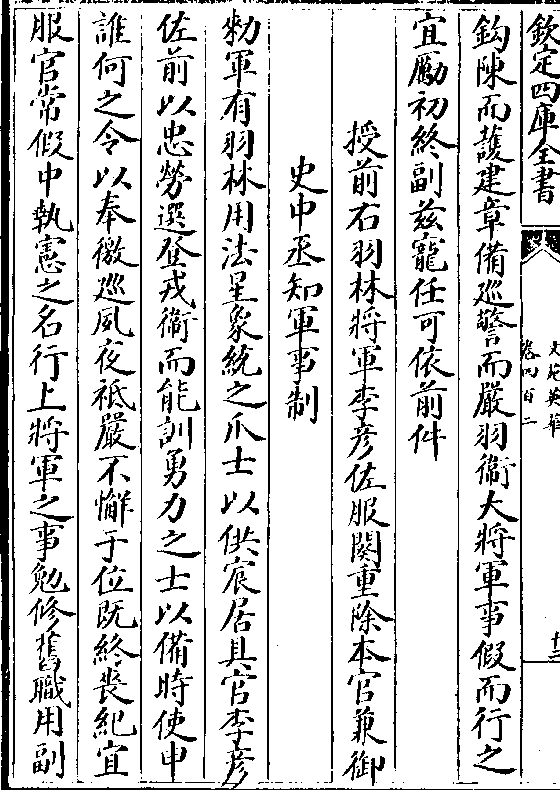 欽定四庫全書
文苑英華
卷四百二
十三
鈎陳而䕶建章備廵警而嚴羽衞大將軍事假而行之
宜勵初終副兹寵任可依前件
授前右羽林將軍李彦佐服闋重除本官兼御
史中丞知軍事制
勑軍有羽林用法星象統之爪士以供宸居具官李彦
佐前以忠勞選登戎衞而能訓勇力之士以備時使申
誰何之令以奉徼廵夙夜祗嚴不懈于位既終喪紀宜
服官常假中執憲之名行上將軍之事勉修舊職用副